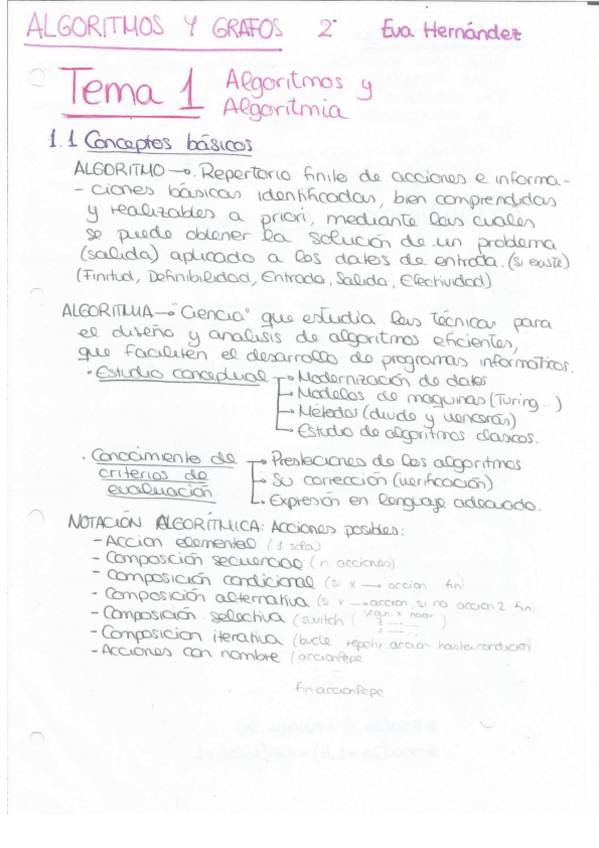 ALGORITMOS Y GRAFOS 2º Eva Hernández
Tema 1 Algoritmos y
Algoritmia
1.1 Conceptos básicos
ALGORITMO →. Repertorio finito de acciones e informa-
- ciones básicas identificadas, bien comprendidas
y realizables a priori, mediante las cuales
se puede obtener la solución de un problema
(salida) aplicado a los datos de entrada. (si existe)
(Finitud, Definibilidad, Entrada, Salida, Efectividad)
ALGORITMIA → "Ciencia" que estudia las técnicas para
el diseño y analisis de algoritmos eficientes,
que faciliten el desarrollo de programas informáticos.
· Estudio conceptual → Modernización de datos
→ Modelos de maquinas (Turing..)
→ Métodos (divide y vencerás)
→ Estudio de algoritmos clasicos.
· Conocimiento de → Prestaciones de los algoritmos
criterios de → Su corrección (verificación)
evaluación → Expresión en lenguaje adecuado.
NOTACIÓN ALGORÍTMICA: Acciones posibles:
- Acción elemental (1 sola)
- Composción secuencial (n acciones)
- Composición condicional (si x → accion fin)
- Composición alternativa (si x → accion, si no accion 2 fin)
- Composición selectiva (switch ( segun x hacer )
- Composicion iterativa (bucle repetir accion hasta condicion)
- Acciones con nombre (accionPepe
fin accionPepe